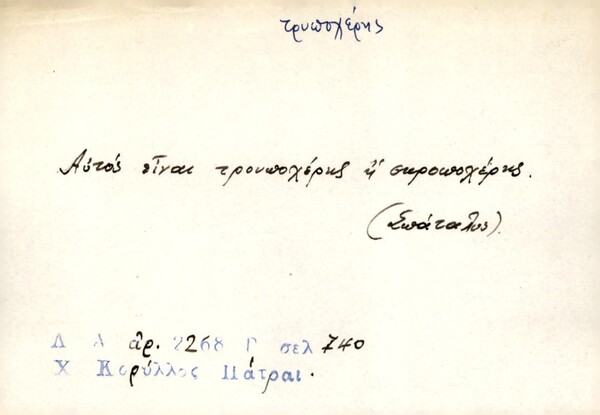 τρυποχέρης
Αὐτός εἶναι τρουποχέρης ἤ σκροποχέρης.
(Σπάταλος).
Λ Α ἀρ. 2268 Γ σελ 740
Χ Κορύλλος Πάτραι.